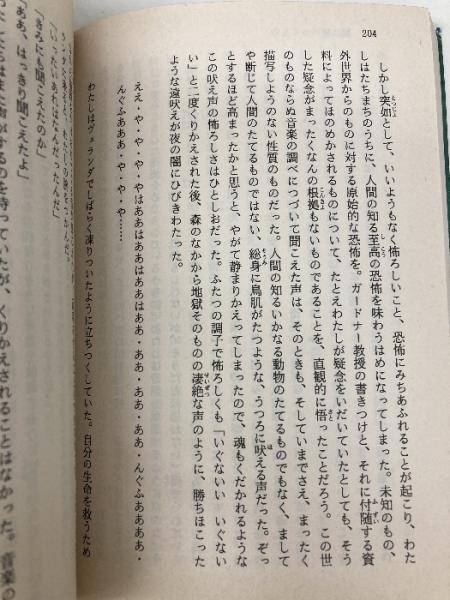 204
しかし突如として、いいようもなく怖ろしいこと、恐怖にみちあふれることが起こり、わた
しはたちまちのうちに、人間の知る至高の恐怖を味わうはめになってしまった。未知のもの、
外世界からのものに対する原始的な恐怖を。ガードナー教授の書きつけと、それに付随する資
料によってほのめかされるものについて、たとえわたしが疑念をいだいていたとしても、そう
した疑念がまったくなんの根拠もないものであることを、直観的に悟ったことだろう。この世
のものならぬ音楽の調べにつづいて聞こえた声は、そのときも、そしていまでさえ、まったく
描写しようのない性質のものだった。人間の知るいかなる動物のたてるものでもなく、まして
や断じて人間のたてるものではない、総身に鳥肌がたつような、うつろに吠える声だった。ぞっ
とするほど高まったかと思うと、やがて静まりかえってしまったので、魂もくだかれるような
この吠え声の怖ろしさはひとしおだった。ふたつの調子で怖ろしくも「いぐないい　いぐない
い」と二度くりかえされた後、森のなかから地獄そのものの凄絶な声のように、勝ちほこった
ような遠吠えが夜の闇にひびきわたった。
ええ・や・や・や・やはああはああはああはああ・ああ・ああ・ああ・んぐふああああ・
んぐふあああ・や・や・や……
わたしはヴェランダでしばらく凍りついたように立ちつくしていた。自分の生命を救うため
「いったい、あれはなんだったんだ」
「きみにも聞こえたのか」
「ああ、はっきり聞こえたよ」
くりかえされることはなかった。音楽の